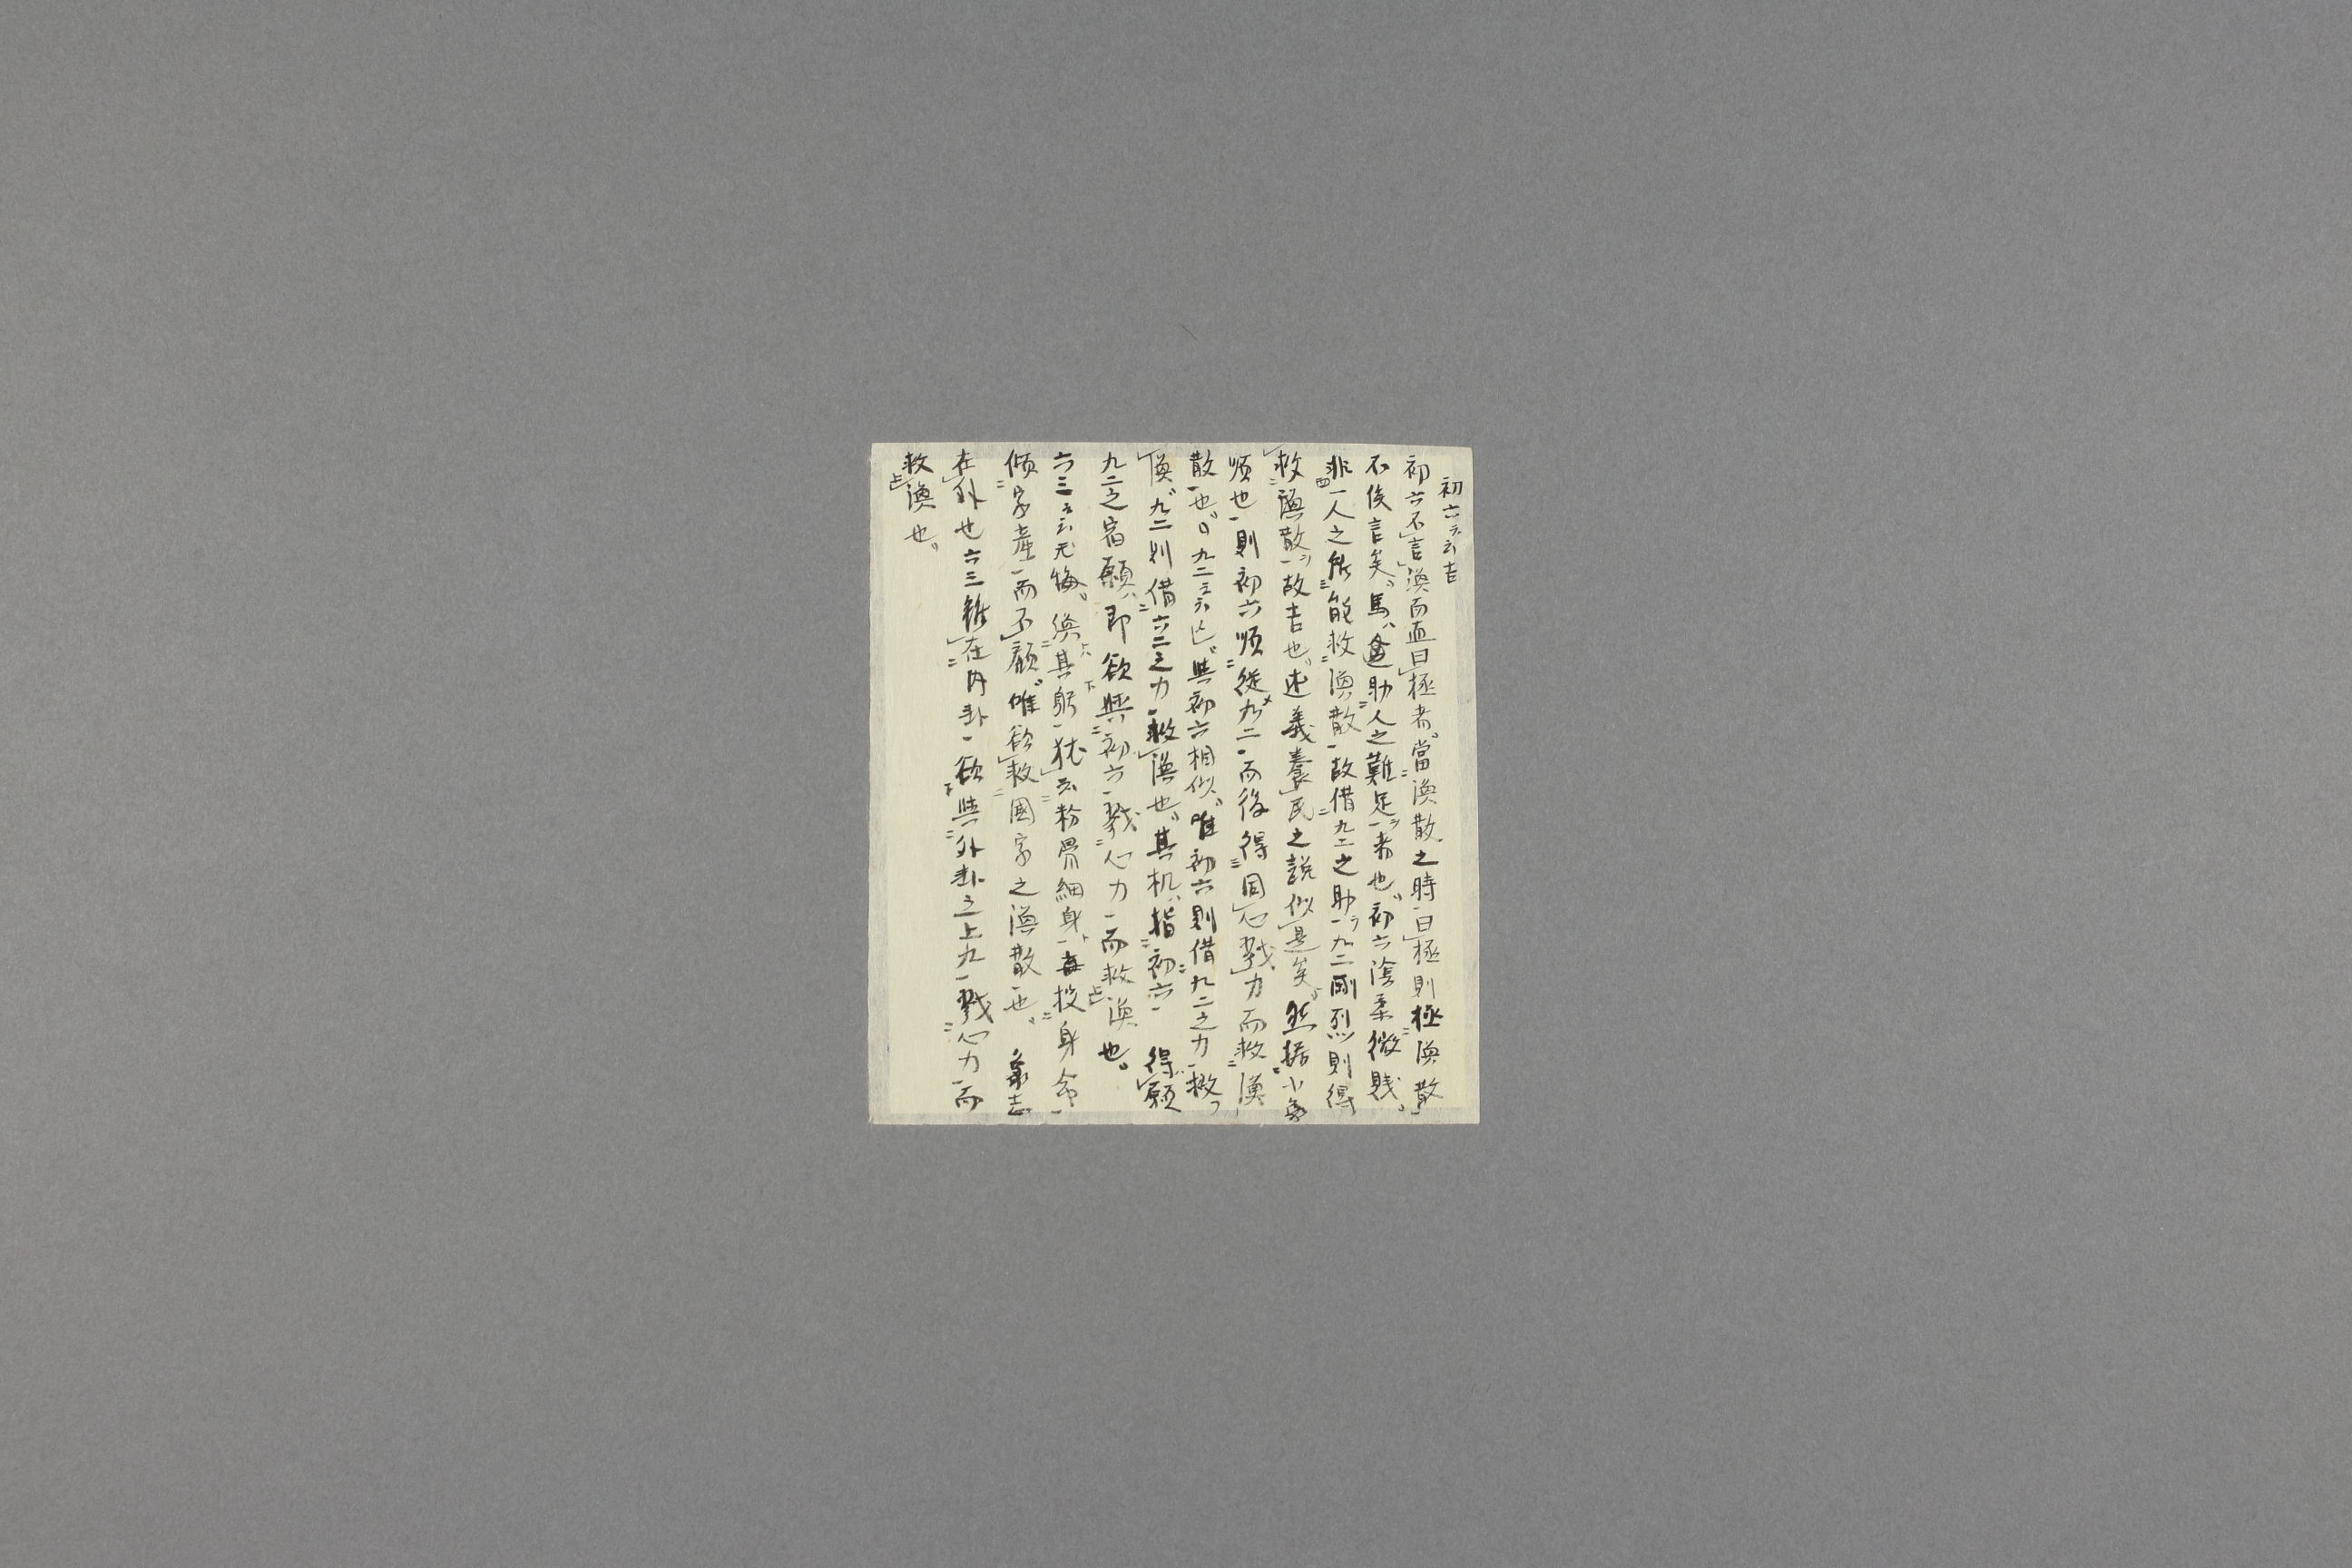 初六云云吉
初六不言渙而直曰極者當渙散之時曰極則極渙散
不俟言矣馬逸助人之難足者也初六陰柔微賤
非一人之所能救渙散故借九二之助九二剛烈則得
救渙散故吉也述義養民之説似是矣然據小象
順也則初六順從九二而後得同心戮力而救渙
散也〇九二云云亡與初六相似唯初六則借九二之力救
渙九二則借六二之力救渙也其机指初六 得願
九二之宿願即欲與初六戮心力而救渙也
六三云云无悔渙其躬猶云粉骨細身毎投身命
傾家産而不顧唯欲救國家之渙散也 象志
在外也六三雖在内卦欲與外卦之上九戮心力而
救渙也